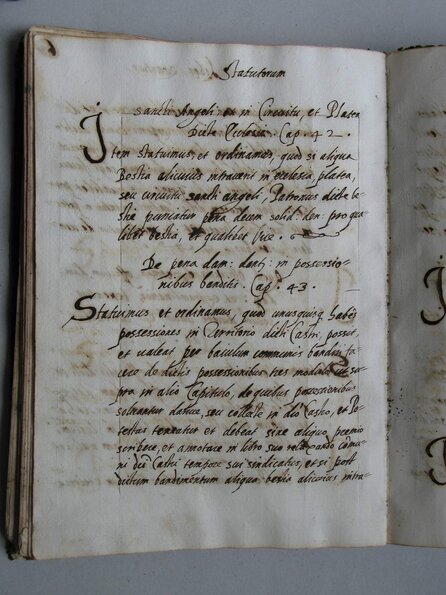 Statutorum
Sancti Angeli et in Circuitu, et Platea
dictæ Ecclesiæ. Cap. 42.
Item statuimus, et ordinamus, quod si aliqua
Bestia alicuius intraverit in ecclesia, platea,
seu circuitu sancti angeli, Patronus dictæ be-
stiæ puniatur pena decem solid: den: pro qua-
libet bestia, et qualibet vice.
De pena dam: dant: in possessio-
nibus banditis. Cap. 43.
Statuimus et ordinamus, quod unusquisq habēs
possessiones in Territorio dicti Castri, possit,
et valeat per baiulum communis bandiri fa-
cere de dictis possessionibus tres modiolos ut su-
pra in alio Capitulo, de quibus possessionibus
solvantur dativæ, seu collecte in dicto Castro, et Po-
testas teneatur et debeat sine aliquo premio
scribere, et annotare in libro suo
ni dicti Castri tempore sui sindicatus, et si post
dictum bandimentum aliqua bestia alicuius intra-